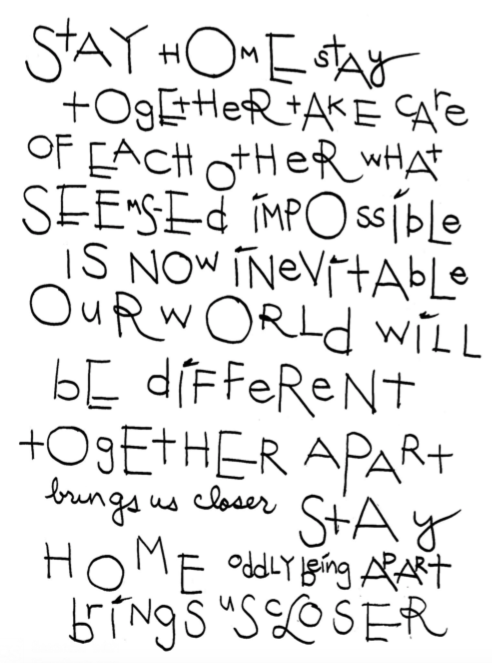 StAY HOME stAy
tOgEtHeR tAKE CAre
OF EACH OtHeR wHAt
SEEMS-Ed iMPOssibLe
IS NOW iNeVitAbLe
OuR wORLd wiLL
bE diFFeReNt
tOgEtHER APARt
brings us closer StAy
HOME oddLY being APARt
briNgS uS cLOSER